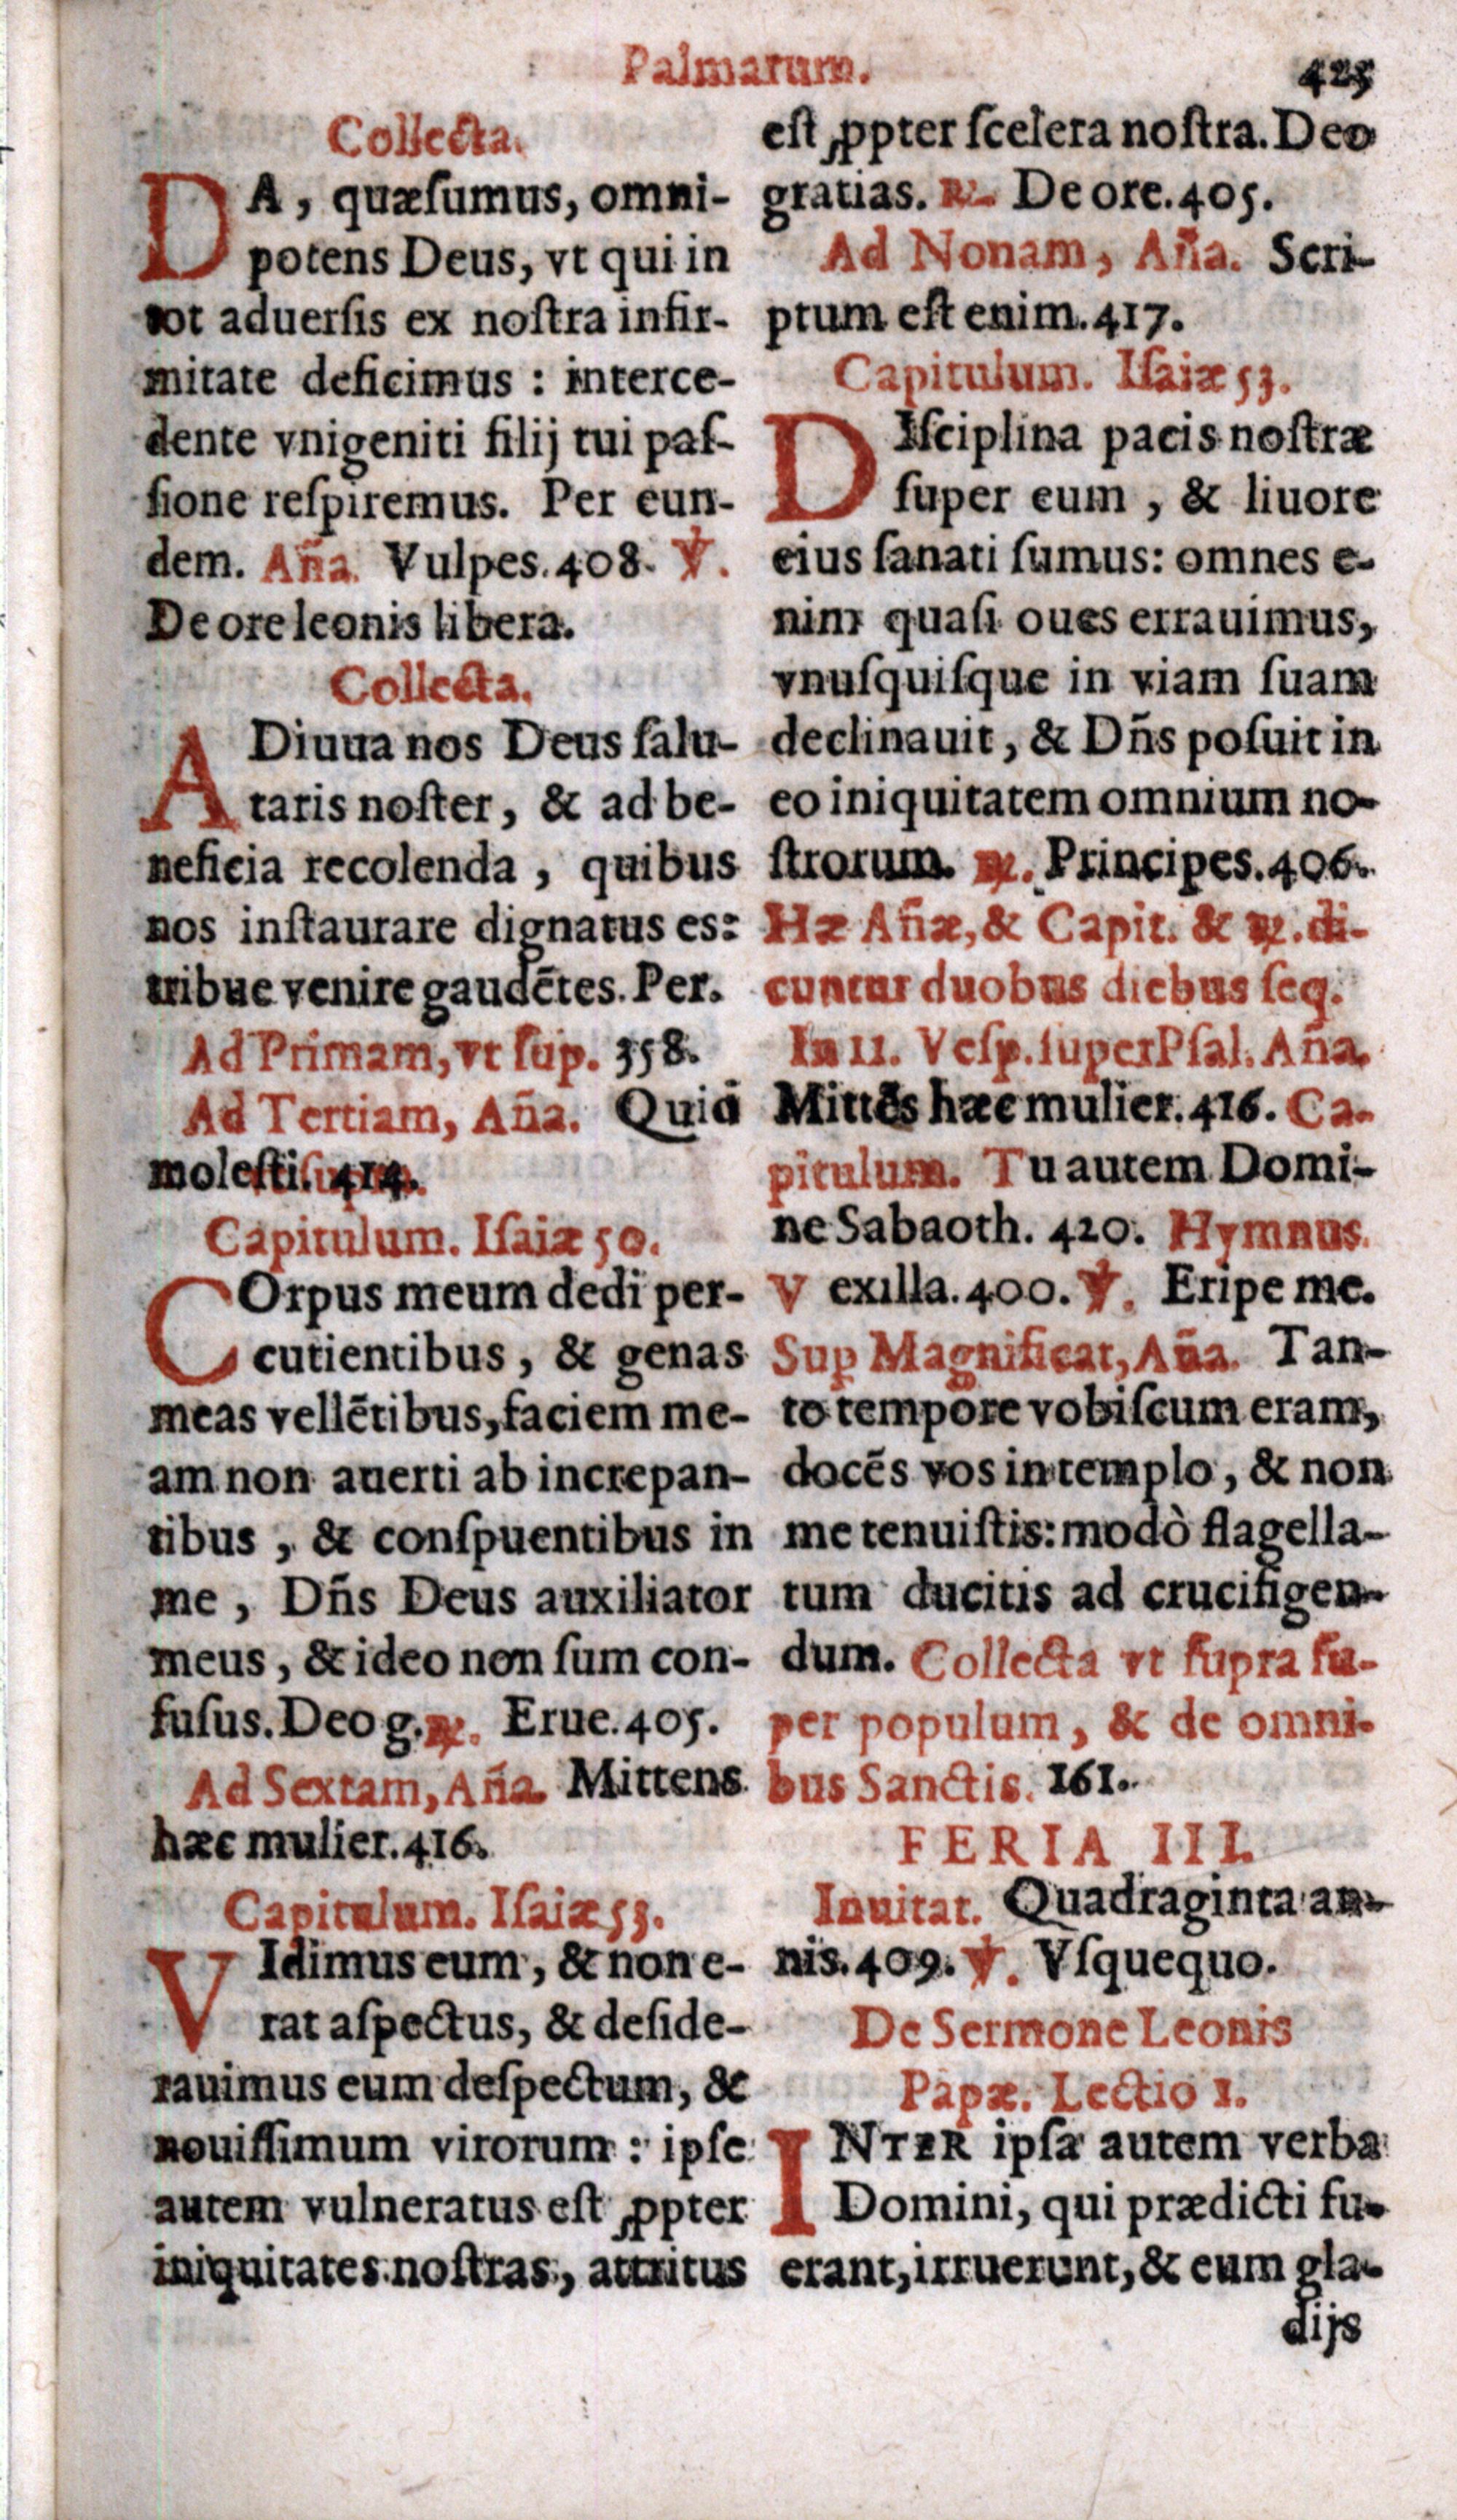 Palmarum. 425
Collecta.
DA, quæſumus, omni-
potens Deus, vt qui in
tot aduerſis ex noſtra infir-
mitate deficimus : interce-
dente vnigeniti filij tui paſ-
ſione reſpiremus. Per eun-
dem. Aña. Vulpes. 408. ℣.
De ore leonis libera.
Collecta.
ADiuua nos Deus ſalu-
taris noſter, & ad be-
neficia recolenda, quibus
nos inſtaurare dignatus es:
tribue venire gaudētes. Per.
Ad Primam, vt ſup. 358.
Ad Tertiam, Aña. Quid
moleſti. 414.
Capitulum. Iſaiæ 50.
COrpus meum dedi per-
cutientibus, & genas
meas vellētibus, faciem me-
am non auerti ab increpan-
tibus, & conſpuentibus in
me, Dñs Deus auxiliator
meus, & ideo non ſum con-
fuſus. Deo g. ℟. Erue. 405.
Ad Sextam, Aña. Mittens
hæc mulier. 416.
Capitulum. Iſaiæ 53.
VIdimus eum, & non e-
rat aſpectus, & deſide-
rauimus eum deſpectum, &
nouiſſimum virorum : ipſe
autem vulneratus eſt ꝓpter
iniquitates noſtras, attritus
eſt ꝓpter ſcelera noſtra. Deo
gratias. ℟. De ore. 405.
Ad Nonam, Aña. Scri-
ptum eſt enim. 417.
Capitulum. Iſaiæ 53.
DIſciplina pacis noſtræ
ſuper eum, & liuore
eius ſanati ſumus: omnes e-
nim quaſi oues errauimus,
vnuſquiſque in viam ſuam
declinauit, & Dñs poſuit in
eo iniquitatem omnium no-
ſtrorum. ℟. Principes. 406.
Hæ Añæ, & Capit. & ℟. di-
cuntur duobus diebus ſeq.
In II. Veſp. ſuper Pſal. Aña.
Mittēs hæc mulier. 416. Ca-
pitulum. Tu autem Domi-
ne Sabaoth. 420. Hymnus.
Vexilla. 400. ℣. Eripe me.
Sup Magnificat, Aña. Tan-
to tempore vobiſcum eram,
docēs vos in templo, & non
me tenuiſtis: modò flagella-
tum ducitis ad crucifigen-
dum. Collecta vt ſupra ſu-
per populum, & de omni-
bus Sanctis. 161.
FERIA III.
Inuitat. Quadraginta an-
nis. 409. ℣. Vſquequo.
De Sermone Leonis
Papæ. Lectio 1.
INTER ipſa autem verba
Domini, qui prædicti fu-
erant, irruerunt, & eum gla-
dijs